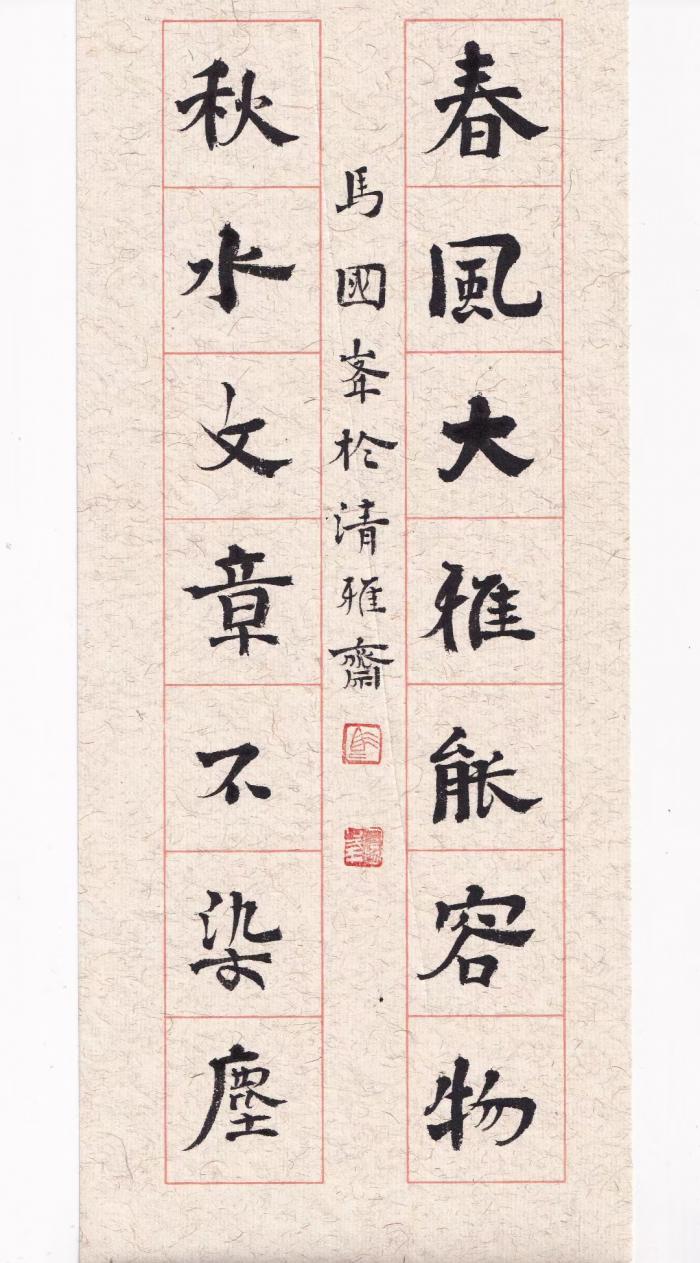 春風大雅能容物
秋水文章不染塵
馬國峯於清雅齋